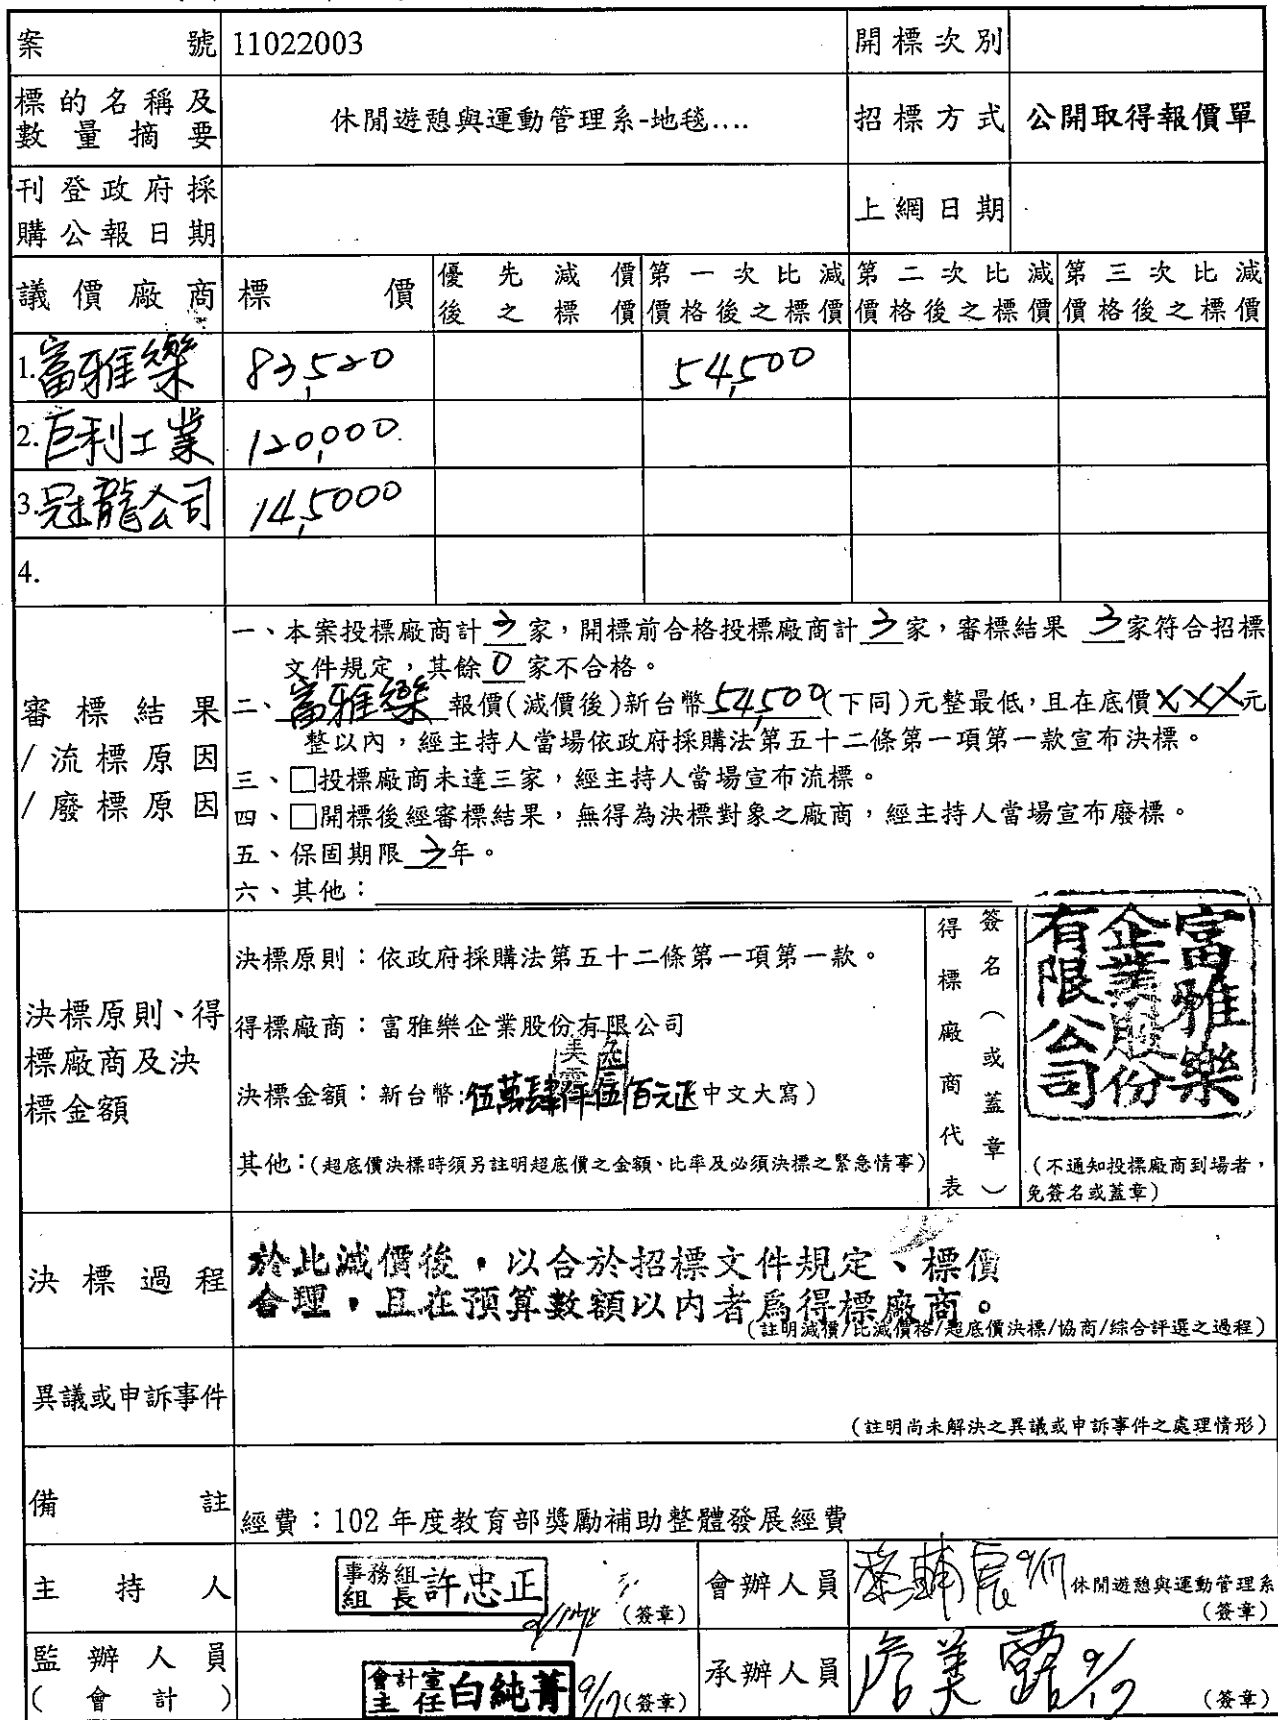 案號 11022003 開標次別
標的名稱及數量摘要 休閒遊憩與運動管理系-地毯.... 招標方式 公開取得報價單
刊登政府採購公報日期 上網日期
議價廠商 標價 優先減價後之標價 第一次比減價格後之標價 第二次比減價格後之標價 第三次比減價格後之標價
1.富雅樂 83,520 54,500
2.巨利工業 120,000
3.冠龍公司 14,5000
4.
審標結果/流標原因/廢標原因
一、本案投標廠商計3家，開標前合格投標廠商計3家，審標結果 3家符合招標
文件規定，其餘0家不合格。
二、富雅樂 報價(減價後)新台幣54,500(下同)元整最低，且在底價XXX元
整以內，經主持人當場依政府採購法第五十二條第一項第一款宣布決標。
三、□投標廠商未達三家，經主持人當場宣布流標。
四、□開標後經審標結果，無得為決標對象之廠商，經主持人當場宣布廢標。
五、保固期限3年。
六、其他：
決標原則、得標廠商及決標金額
決標原則：依政府採購法第五十二條第一項第一款。
得標廠商：富雅樂企業股份有限公司
決標金額：新台幣:伍萬肆仟伍佰元正(中文大寫)
其他：(超底價決標時須另註明超底價之金額、比率及必須決標之緊急情事)
得標廠商代表
簽名（或蓋章）
富雅樂
企業股份
有限公司
(不通知投標廠商到場者，
免簽名或蓋章)
決標過程
於比減價後，以合於招標文件規定、標價
合理，且在預算數額以內者為得標廠商。
(註明減價/比減價格/超底價決標/協商/綜合評選之過程)
異議或申訴事件
(註明尚未解決之異議或申訴事件之處理情形)
備註 經費：102年度教育部獎勵補助整體發展經費
主持人 事務組組長 許忠正 (簽章)
會辦人員 9/17 休閒遊憩與運動管理系
(簽章)
監辦人員(會計) 會計室主任 白純菁 9/17 (簽章)
承辦人員 詹美露 9/17 (簽章)